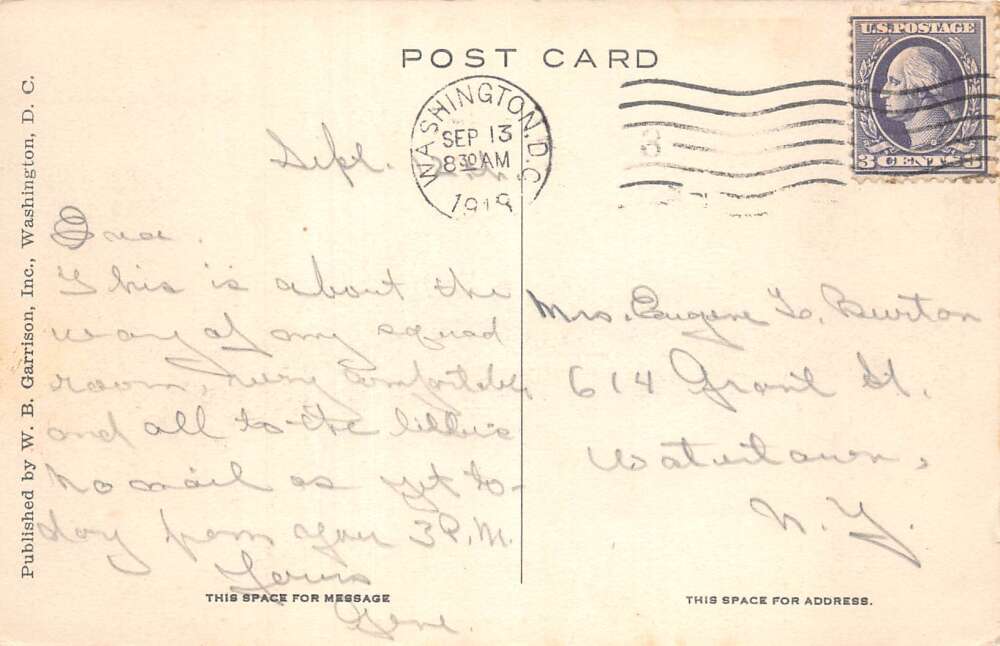 POST CARD
U.S. POSTAGE
3 CENTS 3
WASHINGTON, D.C.
SEP 13
8 30 AM
1918
Published by W. B. Garrison, Inc., Washington, D. C.
Sept.
This is about the
way of my squad
room, very comfortable
and all to the
No mail as yet to-
day from you 3 P.M.
Yours
Gene.
THIS SPACE FOR MESSAGE
Mrs. Eugene L. Burton
614 Grant St.
Watertown,
N.Y.
THIS SPACE FOR ADDRESS.